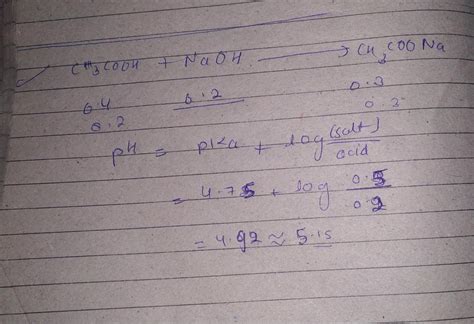 CH3COOH + NaOH → CH3COONa
0.4 0.2 0.3
0.2 0.2
pH = pKa + log (salt)/acid
= 4.75 + log 0.5/0.2
= 4.92 ≈ 5.15